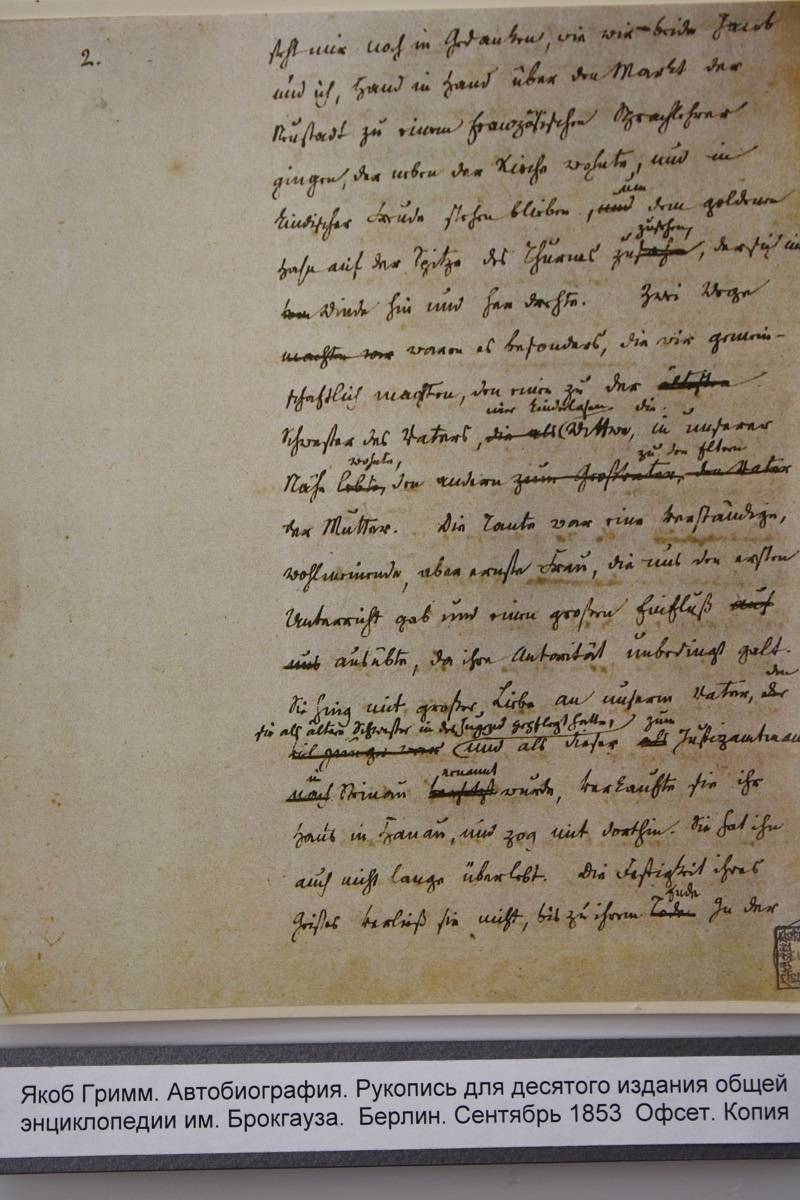 2.
steht mir noch in Gedanken, wie wir beide Jacob
und ich, Hand in Hand über den Markt der
Neustadt zu einem französischen Sprachlehrer
gingen, der neben der Kirche wohnte, und in
um
kindischer Freude stehen blieben, und dem goldenen
zusehen,
Hahn auf der Spitze des Thurmes, der sich im
Winde hin und her drehte. Zwei Wege
machten wir waren es besonders, die wir gemein-
schaftlich machten, den einen zu der ältesten
eine kinderlose die
Schwester des Vaters, die als Wittwe, in unserer
wohnte, zu den Eltern
Nähe lebte, den andern zum Großvater, den Vater
der Mutter. Die Tante war eine verständige,
wohlmeinende, aber ernste Frau, die uns den ersten
Unterricht gab und einen großen Einfluß auf
uns ausübte, da ihre Autorität unbedingt galt.
den
Sie hing mit großer Liebe an unserm Vater, der
sie als ältere Schwester in der Jugend gepflegt hatte, zum
und als dieser als Justizamtmann
in ernannt
nach Steinau versetzt wurde, verkaufte sie ihr
Haus in Hanau, und zog mit dorthin. Sie hat ihn
auch nicht lange überlebt. Die Festigkeit ihres
Ende
Geistes verließ sie nicht, bis zu ihrem Tode. In der
Якоб Гримм. Автобиография. Рукопись для десятого издания общей
энциклопедии им. Брокгауза. Берлин. Сентябрь 1853 Офсет. Копия